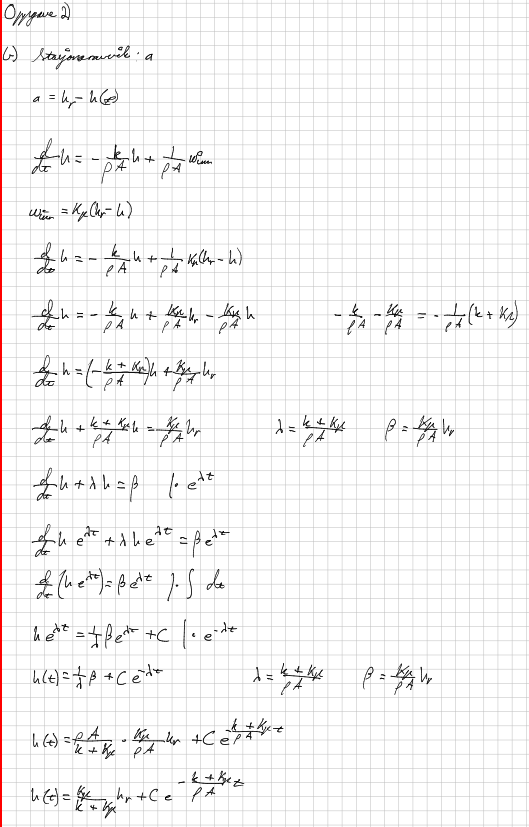 Oppgave 2)
b) Stasjonæravvik: a
a = h_r - h(∞)
d/dt h = - k/ρA h + 1/ρA w_inn
w_inn = K_p(h_r - h)
d/dt h = - k/ρA h + 1/ρA K_p(h_r - h)
d/dt h = - k/ρA h + K_p/ρA h_r - K_p/ρA h    - k/ρA - K_p/ρA = - 1/ρA (k + K_p)
d/dt h = (- k + K_p/ρA) h + K_p/ρA h_r
d/dt h + k + K_p/ρA h = K_p/ρA h_r    λ = k + K_p/ρA    β = K_p/ρA h_r
d/dt h + λ h = β   | · e^λt
d/dt h e^λt + λ h e^λt = β e^λt
d/dt (h e^λt) = β e^λt   | · ∫ dt
h e^λt = 1/λ β e^λt + C   | · e^-λt
h(t) = 1/λ β + C e^-λt    λ = k + K_p/ρA    β = K_p/ρA h_r
h(t) = ρA/k + K_p · K_p/ρA h_r + C e^- k + K_p/ρA t
h(t) = K_p/k + K_p h_r + C e^- k + K_p/ρA t